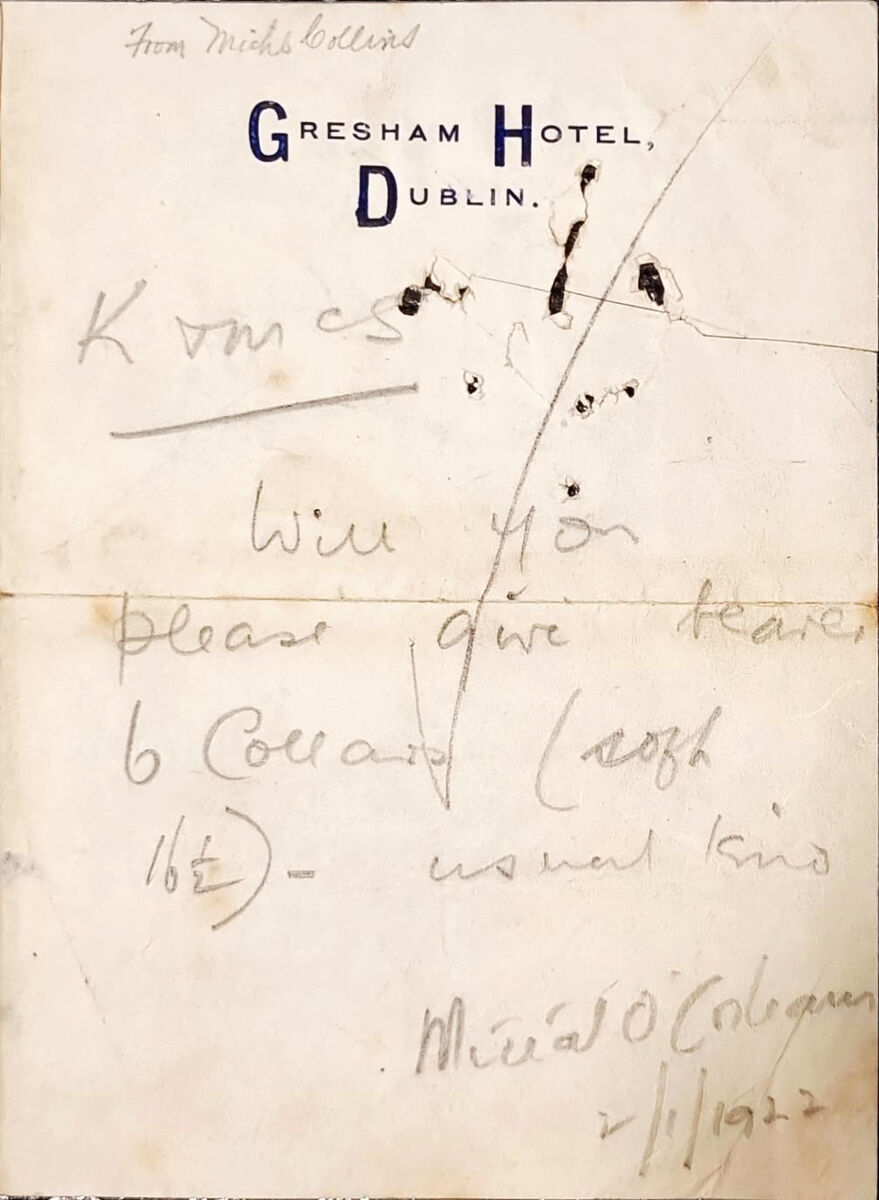 From Michl Collins
GRESHAM HOTEL,
DUBLIN.
Will you
please give bearer
6 Collars (soft
16½) - usual kind
Mícéál Ó
2/1/1922